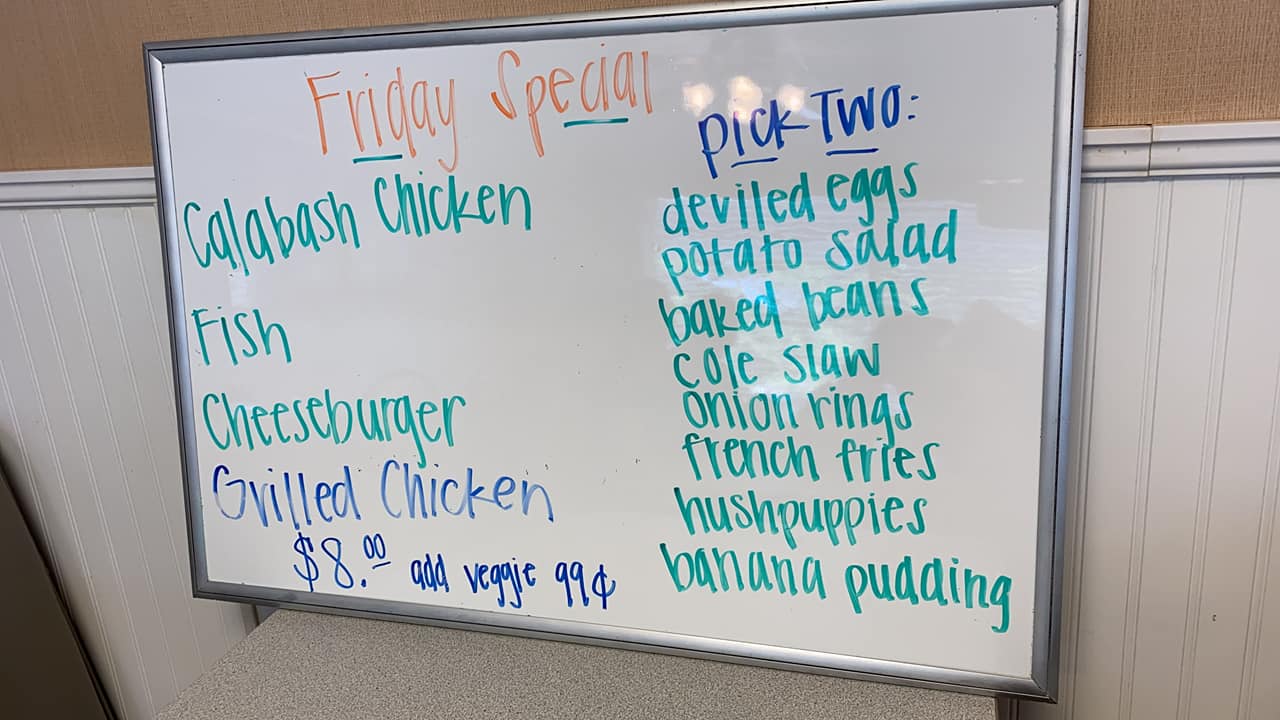 Friday Special
Calabash Chicken
Fish
Cheeseburger
Grilled Chicken
$8.00 add veggie 99¢
pick Two:
deviled eggs
potato salad
baked beans
cole slaw
onion rings
french fries
hushpuppies
banana pudding